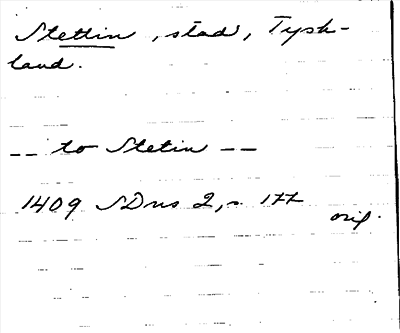 Stettin, stad, Tysk-
land.
-- to Stetin --
1409 SDns 2, s. 177
orig.